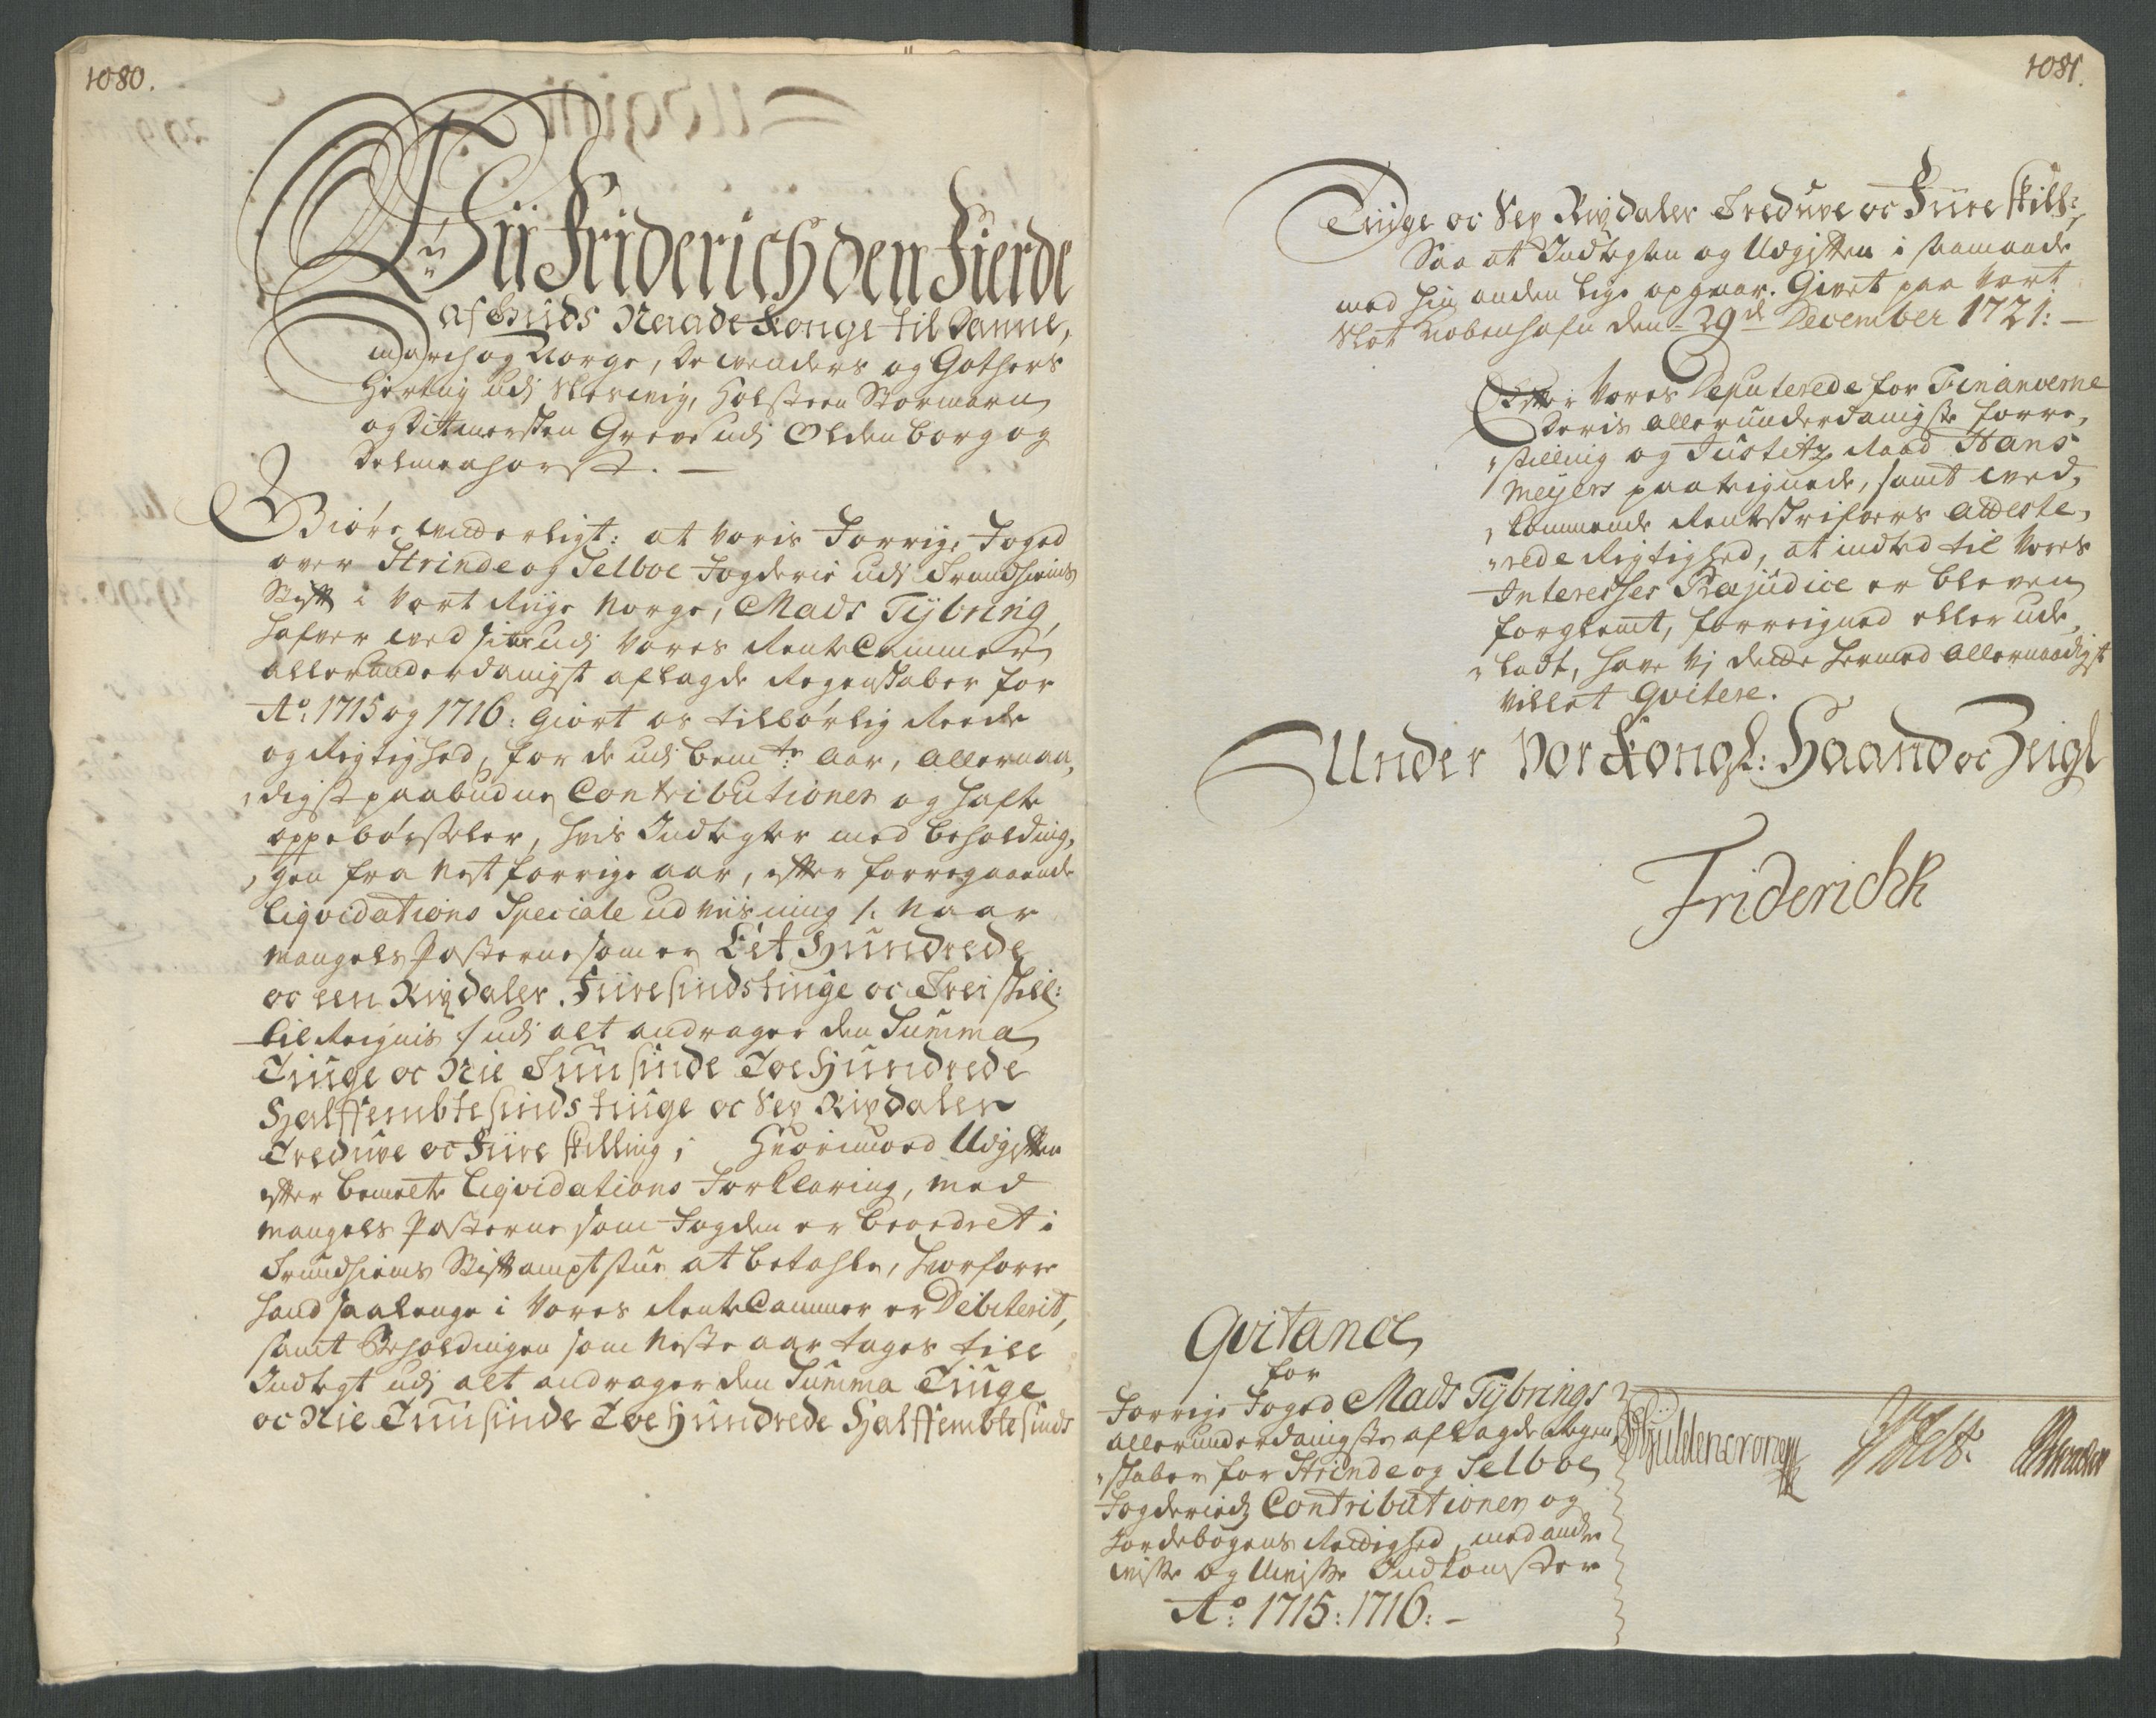 1080.
Wii Friderich den Fierde
af Guds Naade Konge til Danne,
march og Norge, de Wenders og Gothers
Hertug udj Slesvig, Holsteen Stormarn
og Ditmersken Greve udj Oldenborg og
Delmenhorst. —
Giøre witterligt: at voris Forrige Foged
over Strinde og Selboe Fogderie udj Trundhiems
Stift i Vort Riige Norge, Mads Tÿbring,
hafver wed sine udj Vores Rente Cammer
allerunderdanigst aflagde Regenskaber for
Ao: 1715 og 1716: giort os tilbørlig Reede
og Rigtighed, for de udj bemte: Aar, allernaa,
„digst paabudne Contributioner og hafte
oppebørseler, hvis Indtegter med beholding,
„gen fra Nest forrige aar, efter forregaaende
Liqvidations Speciale udviisning /: Naar
mangels Posterne som er Eet Hundrede
oc een Rixdaler Fiiresindstiuge oc Trei skill:
til Reignis / udj alt andrager den Summa
Tiuge oc Nie Tuusinde Toe Hundrede
Halffembtesinds tiuge oc Sex Rixdaler
Treduve oc Fiire skilling; Hvorimod Udgiften
efter bemelte Liqvidations Forklaring, med
mangels Posterne som Fogden er beordret i
Trundhiems Stiftamptstue at betahle, hvorforre
hand saalenge i Vores Rente Cammer er Debiterit,
samt Beholdingen som Neste aar tages till
Indtegt udj alt andrager den Summa Tiuge
oc Nie Tuusinde Toe Hundrede Halffembtesinds
1081.
Tiuge oc Sex Rixdaler Treduve oc Fiire skill:
Saa at Indtegten og Udgiften i saamaade
med hin anden lige opgaar. Givet paa Vort
Slot Kiøbenhafn den 29de December 1721: —
Efter Vores Deputerede for Financerne
Deris allerunderdanigste forre,
„stilling og Justitz Raad Hans
Meÿers paateignede, samt wed,
„kommende Renteskrifvers atteste,
„rede Rigtighed, at indted til Vores
Interesses Præjudice er bleven
forglemt, forreigned eller ude,
„ladt, have Vj dette hermed Allernaadigst
villet qvitere.
Under Vor Kongl: Haand oc Zeigl
Friderich R
Qvitance
for
Forrige Foged Mads Tÿbrings
allerunderdanigste aflagde Regen,
„skaber for Strinde og Selboe
Fogderiers Contributioner og
Jordebogens Rettighed, med andre
wisse og Uwisse Indkomster
Ao: 1715: 1716: —
Gÿldencrone